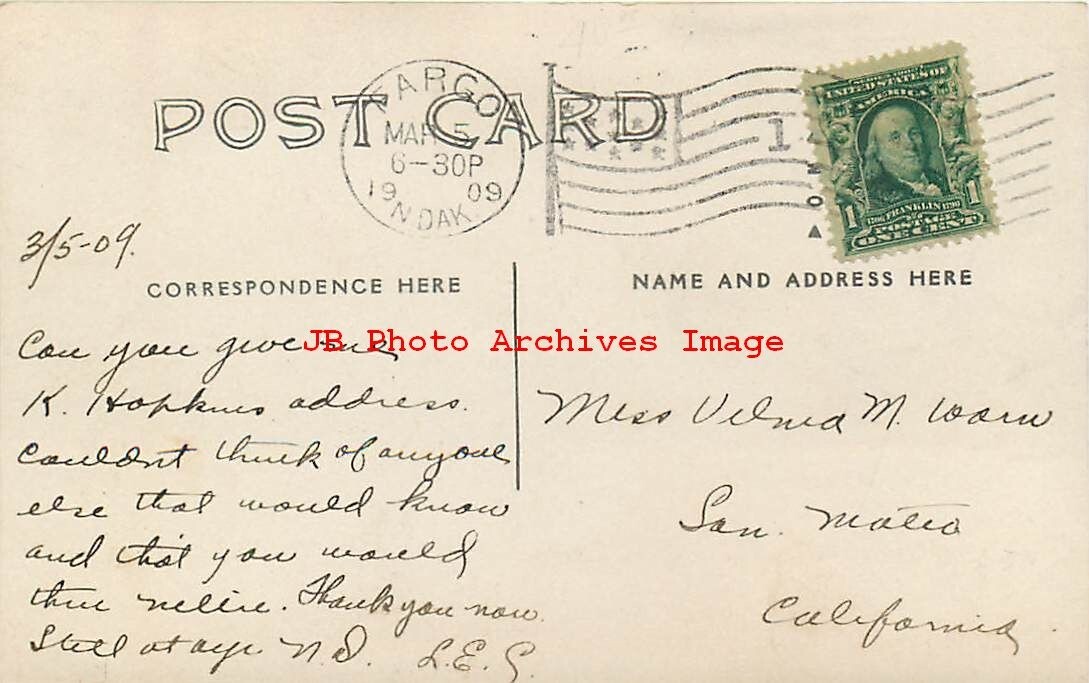 POST CARD
FARGO
MAR 5
6-30P
1909
N.DAK.
1
SERIES 1902
UNITED STATES OF
AMERICA
1706 FRANKLIN 1790
1 POSTAGE 1
ONE CENT
3/5-09.
CORRESPONDENCE HERE
NAME AND ADDRESS HERE
JB Photo Archives Image
Can you give me
K. Hopkins address.
Couldnt think of anyone
else that would know
and that you would
thru Nellie. Thank you now.
Still at N.D. L.E.S.
Miss Velma M. Worn
San. Mateo
California.